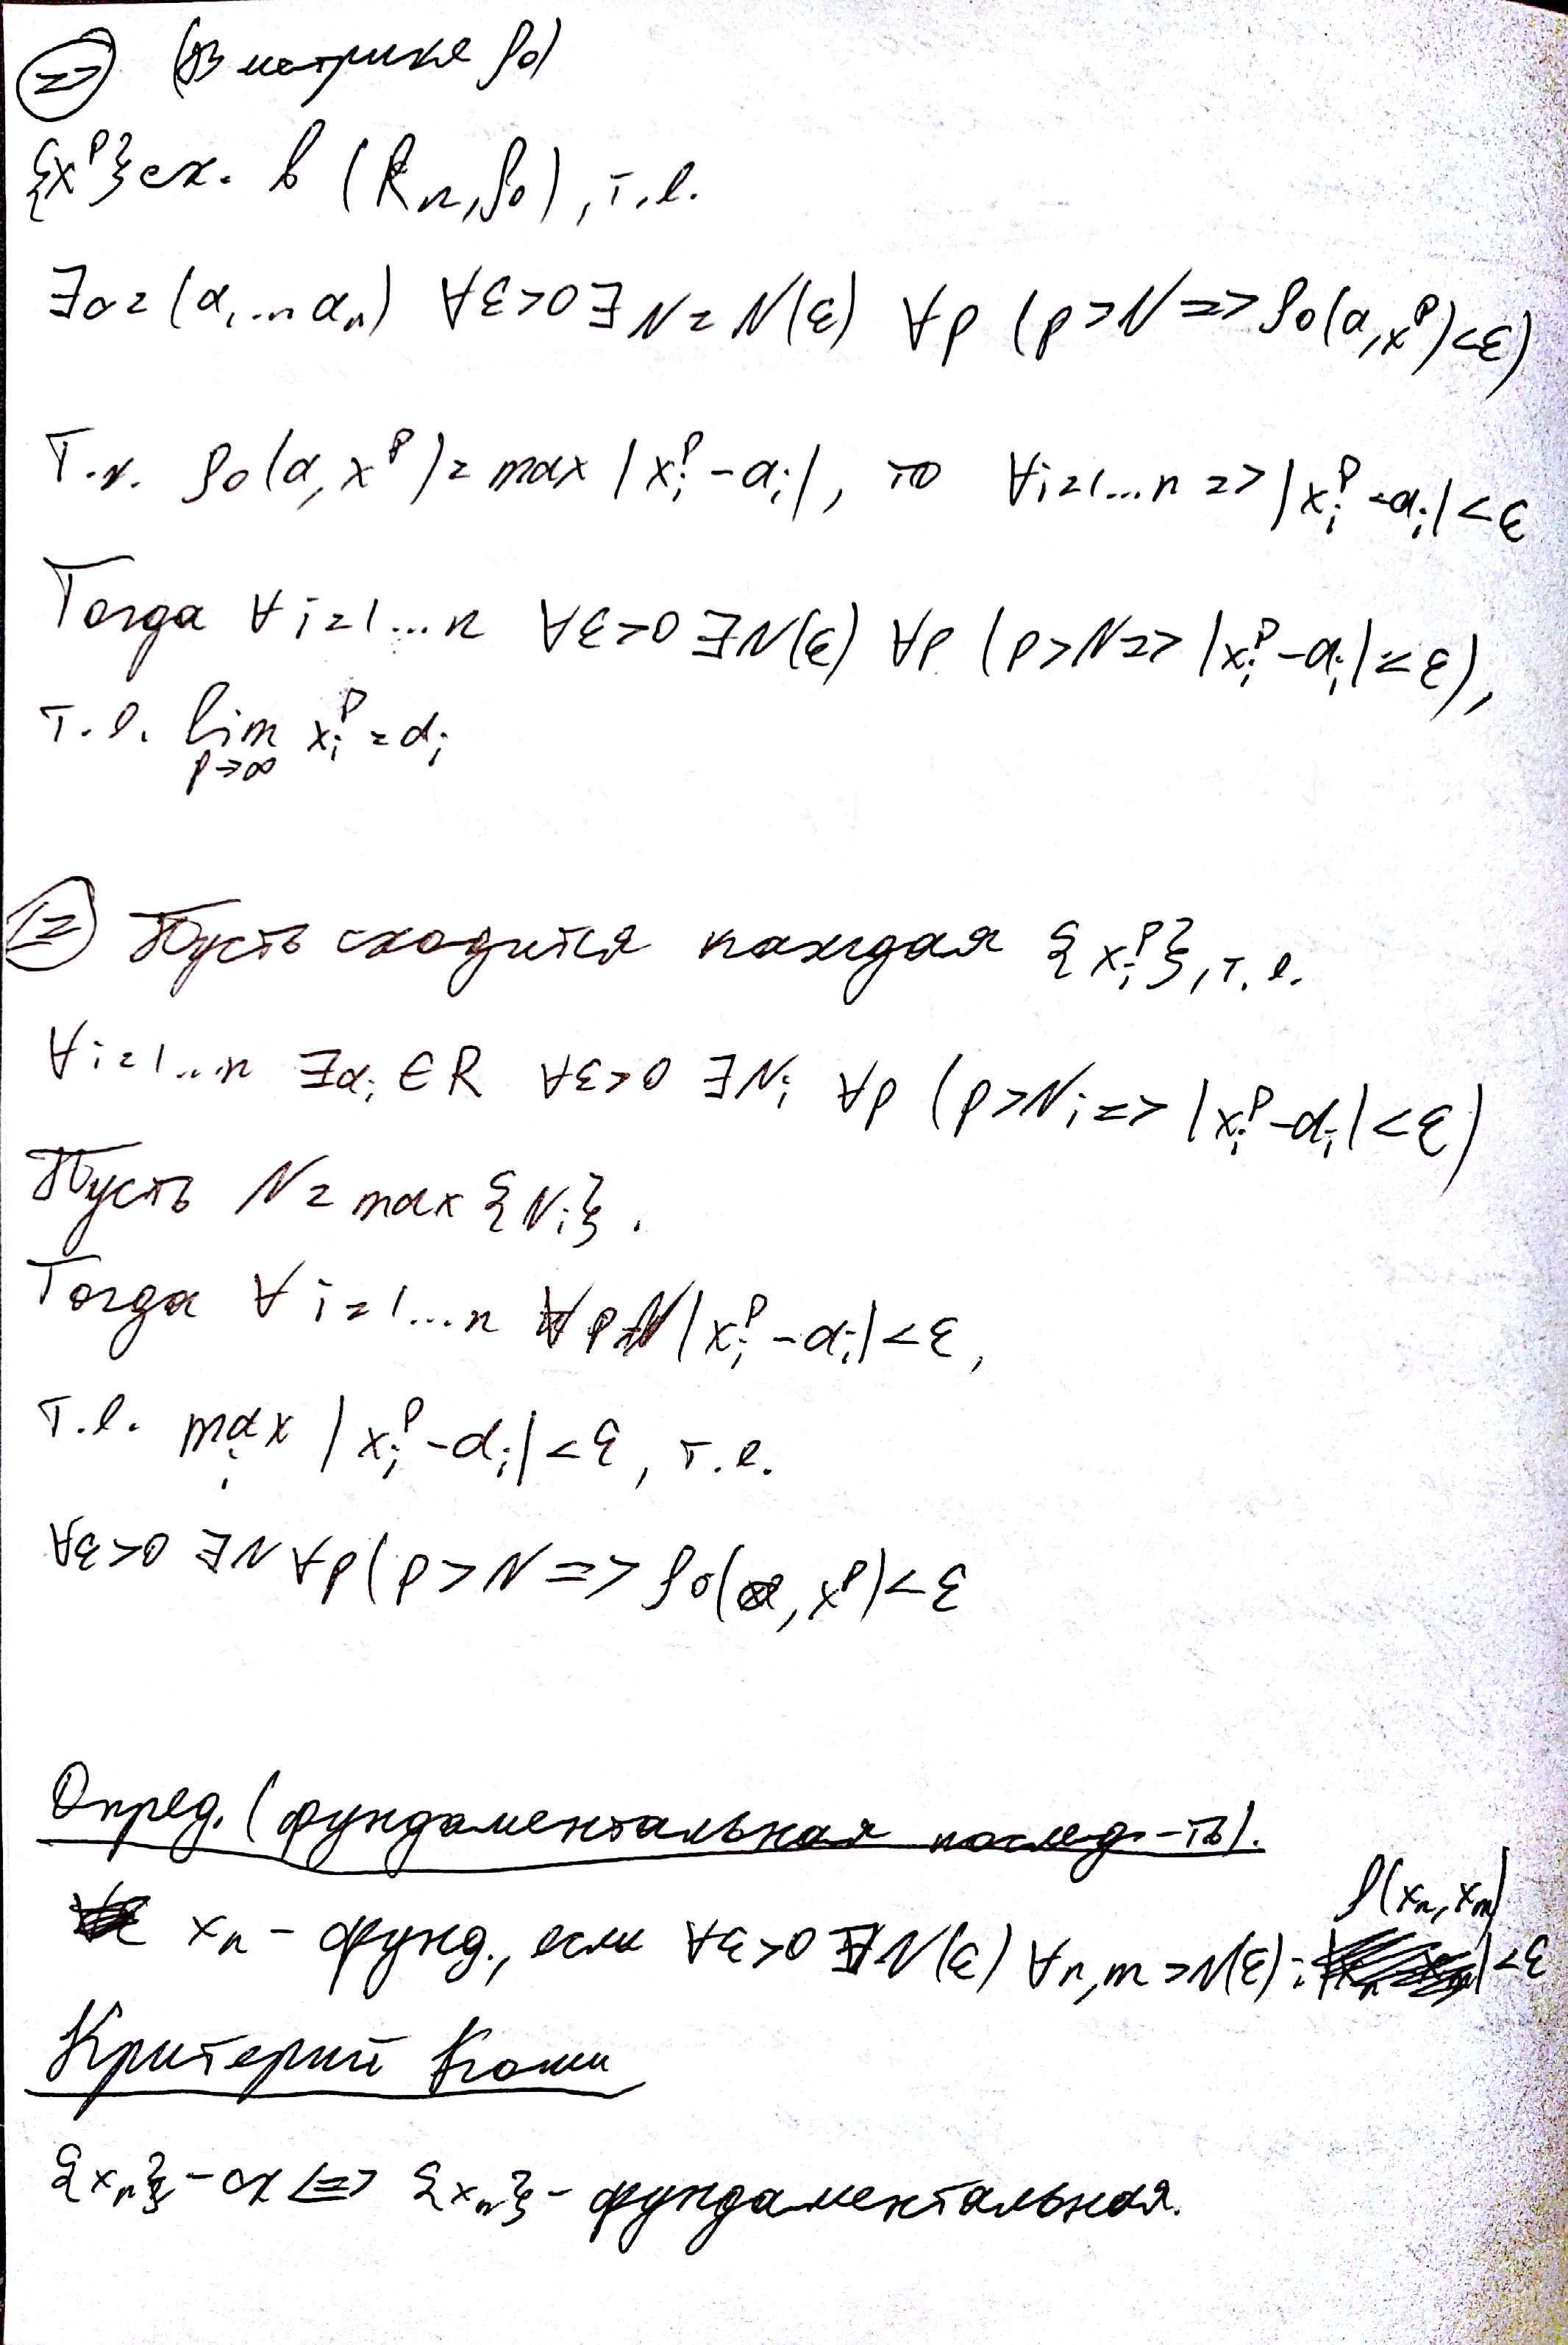 => (В метрике ρ₀)
{xᵖ} сх. в (Rₙ, ρ₀), т.е.
∃a=(a₁...aₙ) ∀ε>0 ∃N=N(ε) ∀p (p>N => ρ₀(a,xᵖ)<ε)
Т.к. ρ₀(a,xᵖ)=max |xᵢᵖ-aᵢ|, то ∀i=1...n => |xᵢᵖ-aᵢ|<ε
Тогда ∀i=1...n ∀ε>0 ∃N(ε) ∀p (p>N => |xᵢᵖ-aᵢ|<ε),
т.е. lim xᵢᵖ=aᵢ
p→∞
<= Пусть сходится каждая {xᵢᵖ}, т.е.
∀i=1...n ∃aᵢ∈R ∀ε>0 ∃Nᵢ ∀p (p>Nᵢ => |xᵢᵖ-aᵢ|<ε)
Пусть N=max{Nᵢ}.
Тогда ∀i=1...n ∀p>N |xᵢᵖ-aᵢ|<ε,
т.е. maxᵢ |xᵢᵖ-aᵢ|<ε, т.е.
∀ε>0 ∃N ∀p(p>N => ρ₀(a,xᵖ)<ε
Опред. (фундаментальная послед-ть).
xₙ - фунд., если ∀ε>0 ∃N(ε) ∀n,m>N(ε): ρ(xₙ,xₘ)<ε
Критерий Коши
{xₙ} - сх <=> {xₙ} - фундаментальная.